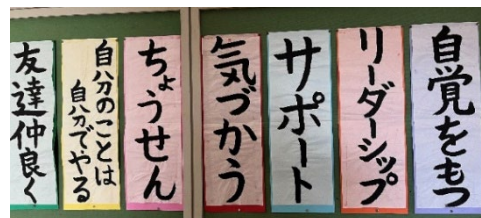 自覚をもつ
リーダーシップ
サポート
気づかう
ちょうせん
自分のことは
自分でやる
友達仲良く